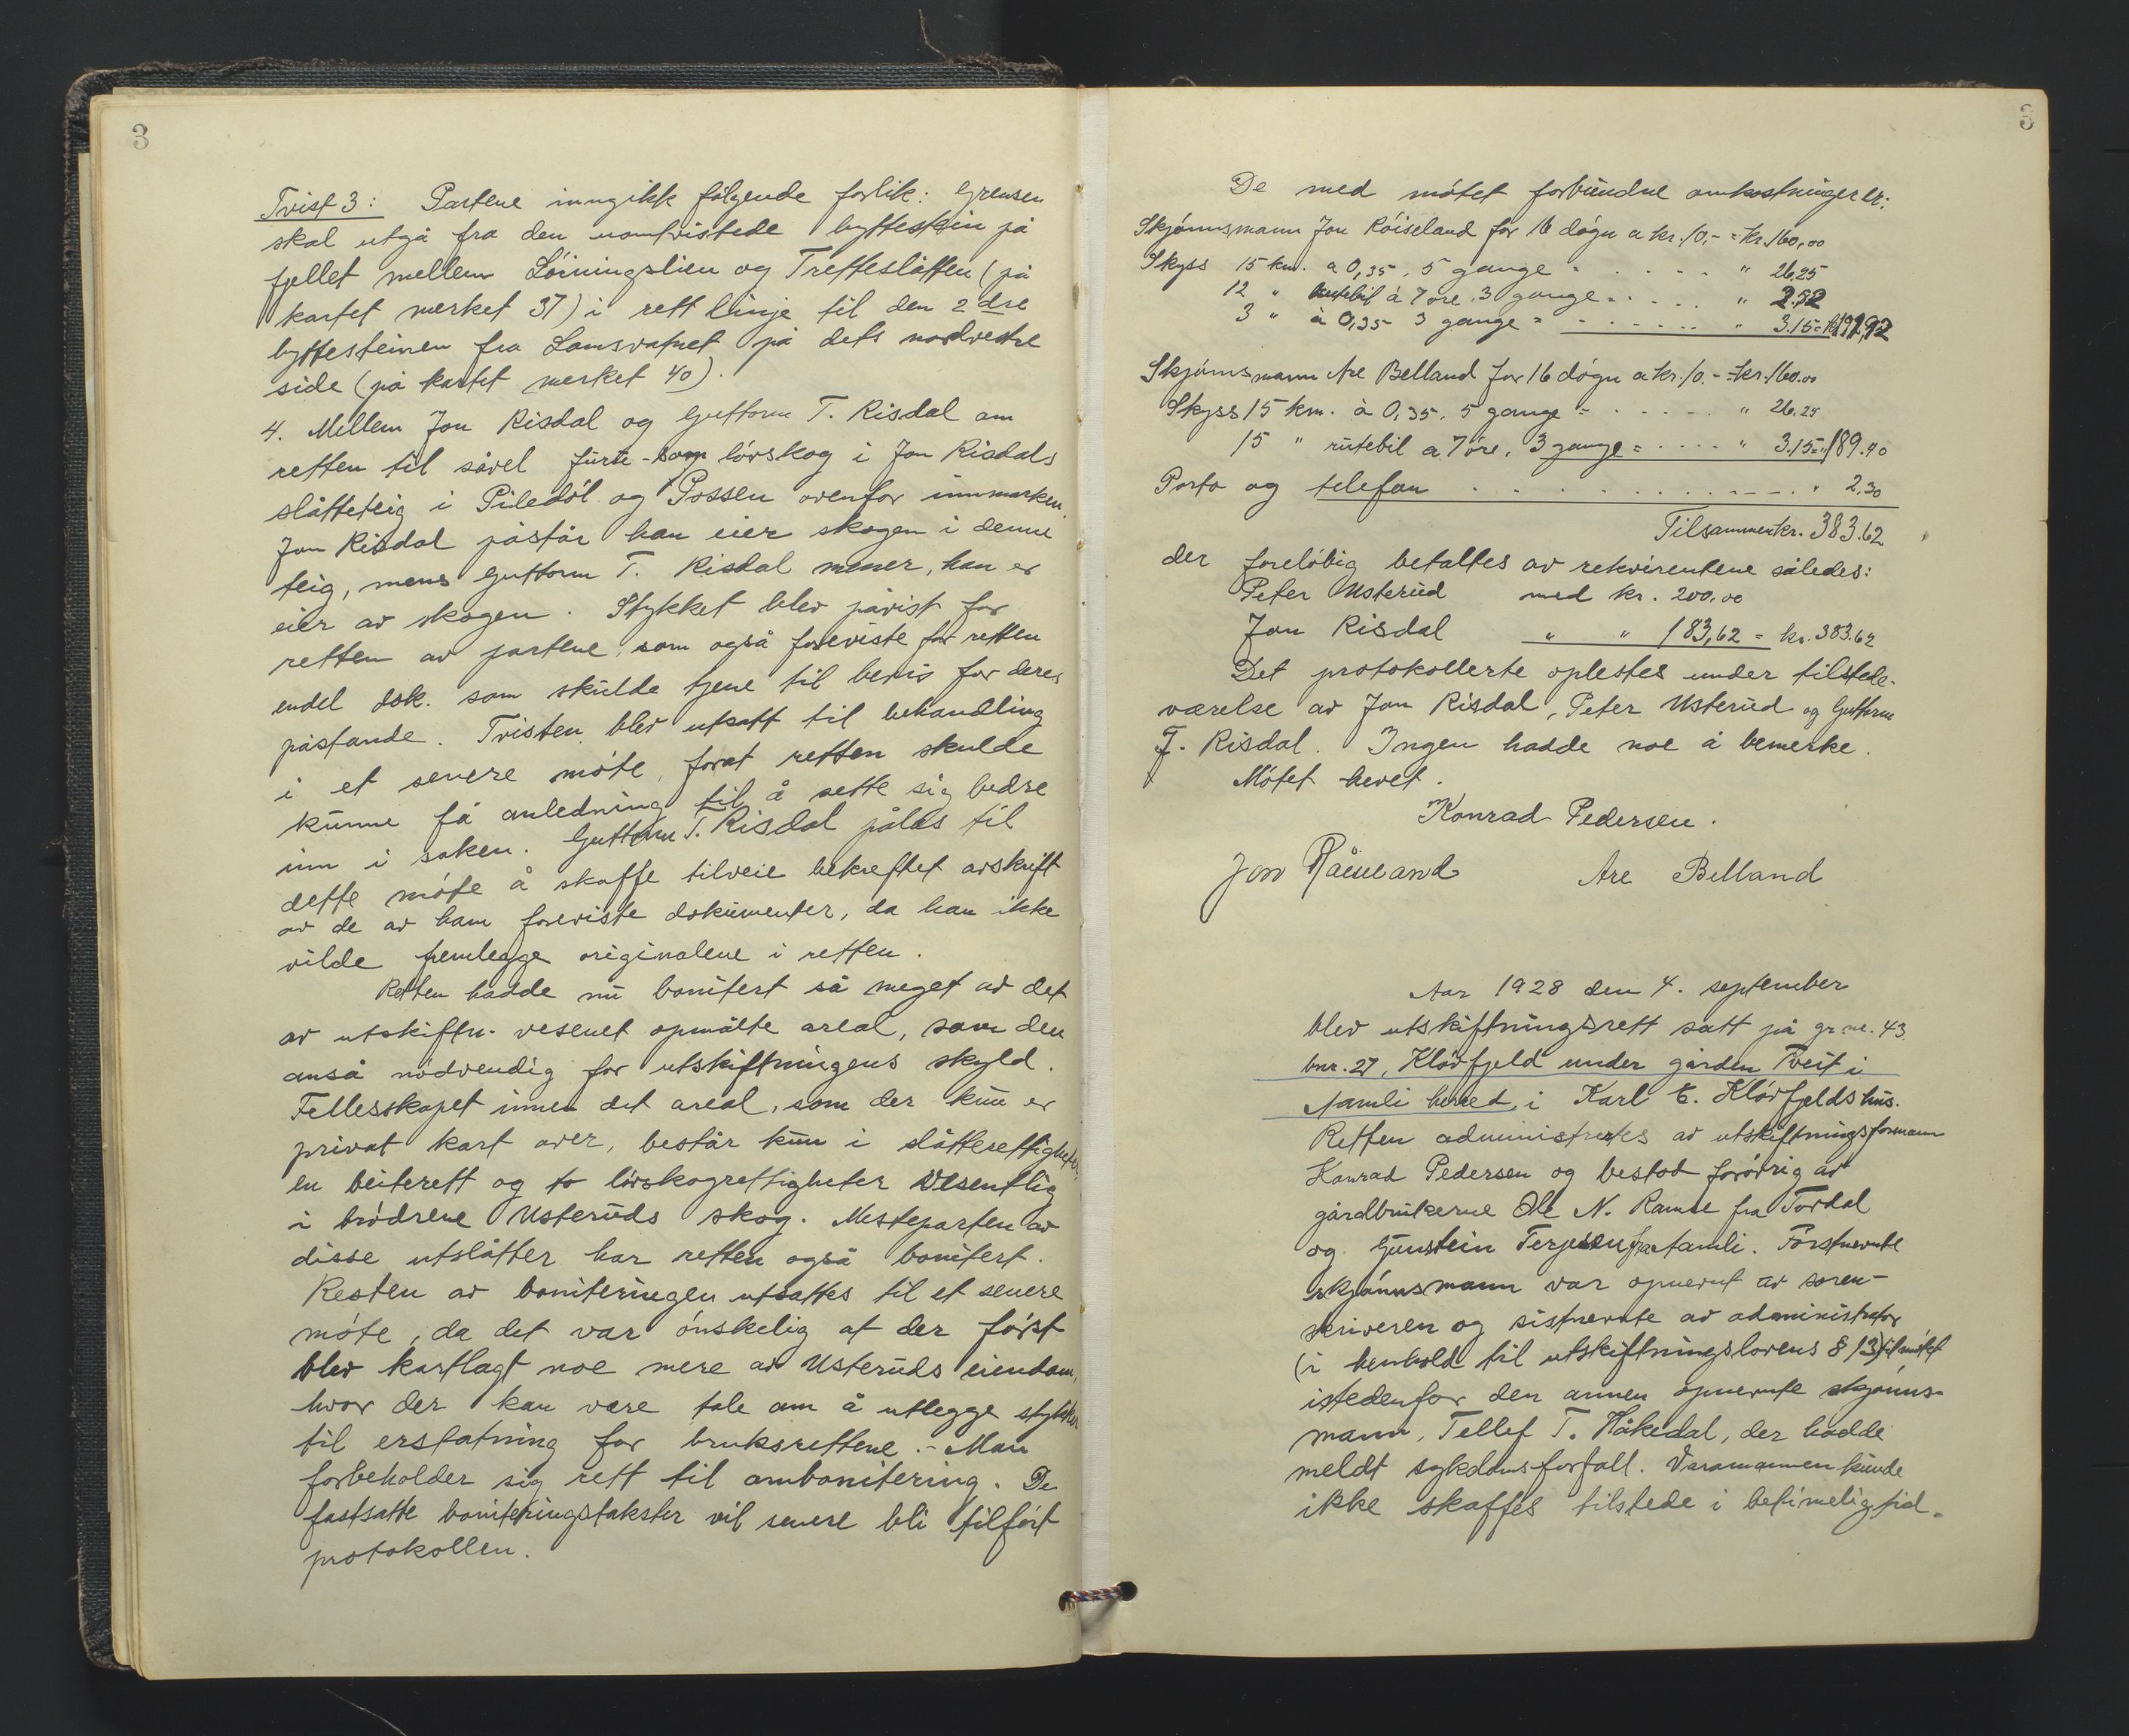 3
Tvist 3: Partene inngikk følgende forlik: Grensen
skal utgå fra den uomtvistede byttestein på
fjellet mellem Lørningslien og Tretteslåtten (på
kartet merket 37) i rett linje til den 2dre
byttesteinen fra Lomsvatnet på dets nordvestre
side (på kartet merket 40).
4. Mellem Jon Risdal og Guttorm T. Risdal om
retten til såvel furu- som løvskog i Jon Risdals
slåtteteig i Piledøl og Possen ovenfor innmarken.
Jon Risdal påstår han eier skogen i denne
teig, mens Guttorm T. Risdal mener, han er
eier av skogen. Stykket blev påvist for
retten av partene, som også foreviste for retten
endel dok. som skulde tjene til bevis for deres
påstande. Tvisten blev utsatt til behandling
i et senere møte, forat retten skulde
kunne få anledning til å sette sig bedre
inn i saken. Guttorm T. Risdal pålas til
dette møte å skaffe tilveie bekreftet avskrift
av de av ham foreviste dokumenter, da han ikke
vilde fremlegge originalene i retten.
Retten hadde nu bonitert så meget av det
av utskiftn. vesenet opmålte areal, som den
anså nødvendig for utskiftningens skyld.
Fellesskapet innen det areal, som der kun er
privat kart over, består kun i slåtterettigheter,
en beiterett og to løvskogrettigheter vesentlig
i brødrene Usteruds skog. Mesteparten av
disse utslåtter har retten også bonitert.
Resten av boniteringen utsattes til et senere
møte, da det var ønskelig at der først
blev kartlagt noe mere av Usteruds eiendom,
hvor der kan være tale om å utlegge stykker
til erstatning for bruksrettene. - Man
forbeholder sig rett til ombonitering. De
fastsatte boniteringstakster vil senere bli tilført
protokollen.
3
De med møtet forbundne omkostninger er:
Skjønnsmann Jon Røiseland for 16 døgn a kr. 10,- = kr. 160,00
Skyss 15 km. a 0,35, 5 gange = . . . . . " 26,25
12 " rutebil á 7 øre, 3 gange = . . . . . " 2.52
3 " à 0,35 3 gange = . . . . . . " 3.15 = kr 191,92
Skjønnsmann Are Belland for 16 døgn a kr. 10.- = kr. 160.00
Skyss 15 km. à 0,35, 5 gange = . . . . . " 26.25
15 " rutebil a 7 øre, 3 gange = . . . . " 3.15 = " 189.40
Porto og telefon . . . . . . . . . . . . . " 2,30
Tilsammen kr. 383.62
der foreløbig betaltes av rekvirentene således:
Peter Usterud med kr. 200,00
Jon Risdal " " 183,62 = kr. 383.62
Det protokollerte oplestes under tilstede-
værelse av Jon Risdal, Peter Usterud og Guttorm
T. Risdal. Ingen hadde noe å bemerke.
Møtet hevet.
Konrad Pedersen.
Jon Are Belland
Aar 1928 den 4. september
blev utskiftningsrett satt på gr. nr. 43
bnr. 27, Kløvfjeld under gården Tveit i
Aamli herred, i Karl E. Kløvfjelds hus.
Retten administrertes av utskiftningsformann
Konrad Pedersen og bestod forøvrig av
gårdbrukerne Ole N. Ramse fra Tovdal
og Gunstein Terjesen fra Aamli. Førstnevnte
skjønnsmann var opnevnt av soren-
skriveren og sistnevnte av administrator
(i henhold til utskiftningslovens § 13) til møtet
istedenfor den annen opnevnte skjønns-
mann, Tellef T. Håkedal, der hadde
meldt sykdomsforfall. Varamannen kunde
ikke skaffes tilstede i betimelig tid.